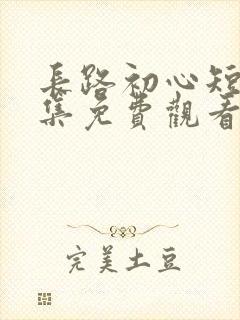 長路初心短
集免費觀看
完美土豆